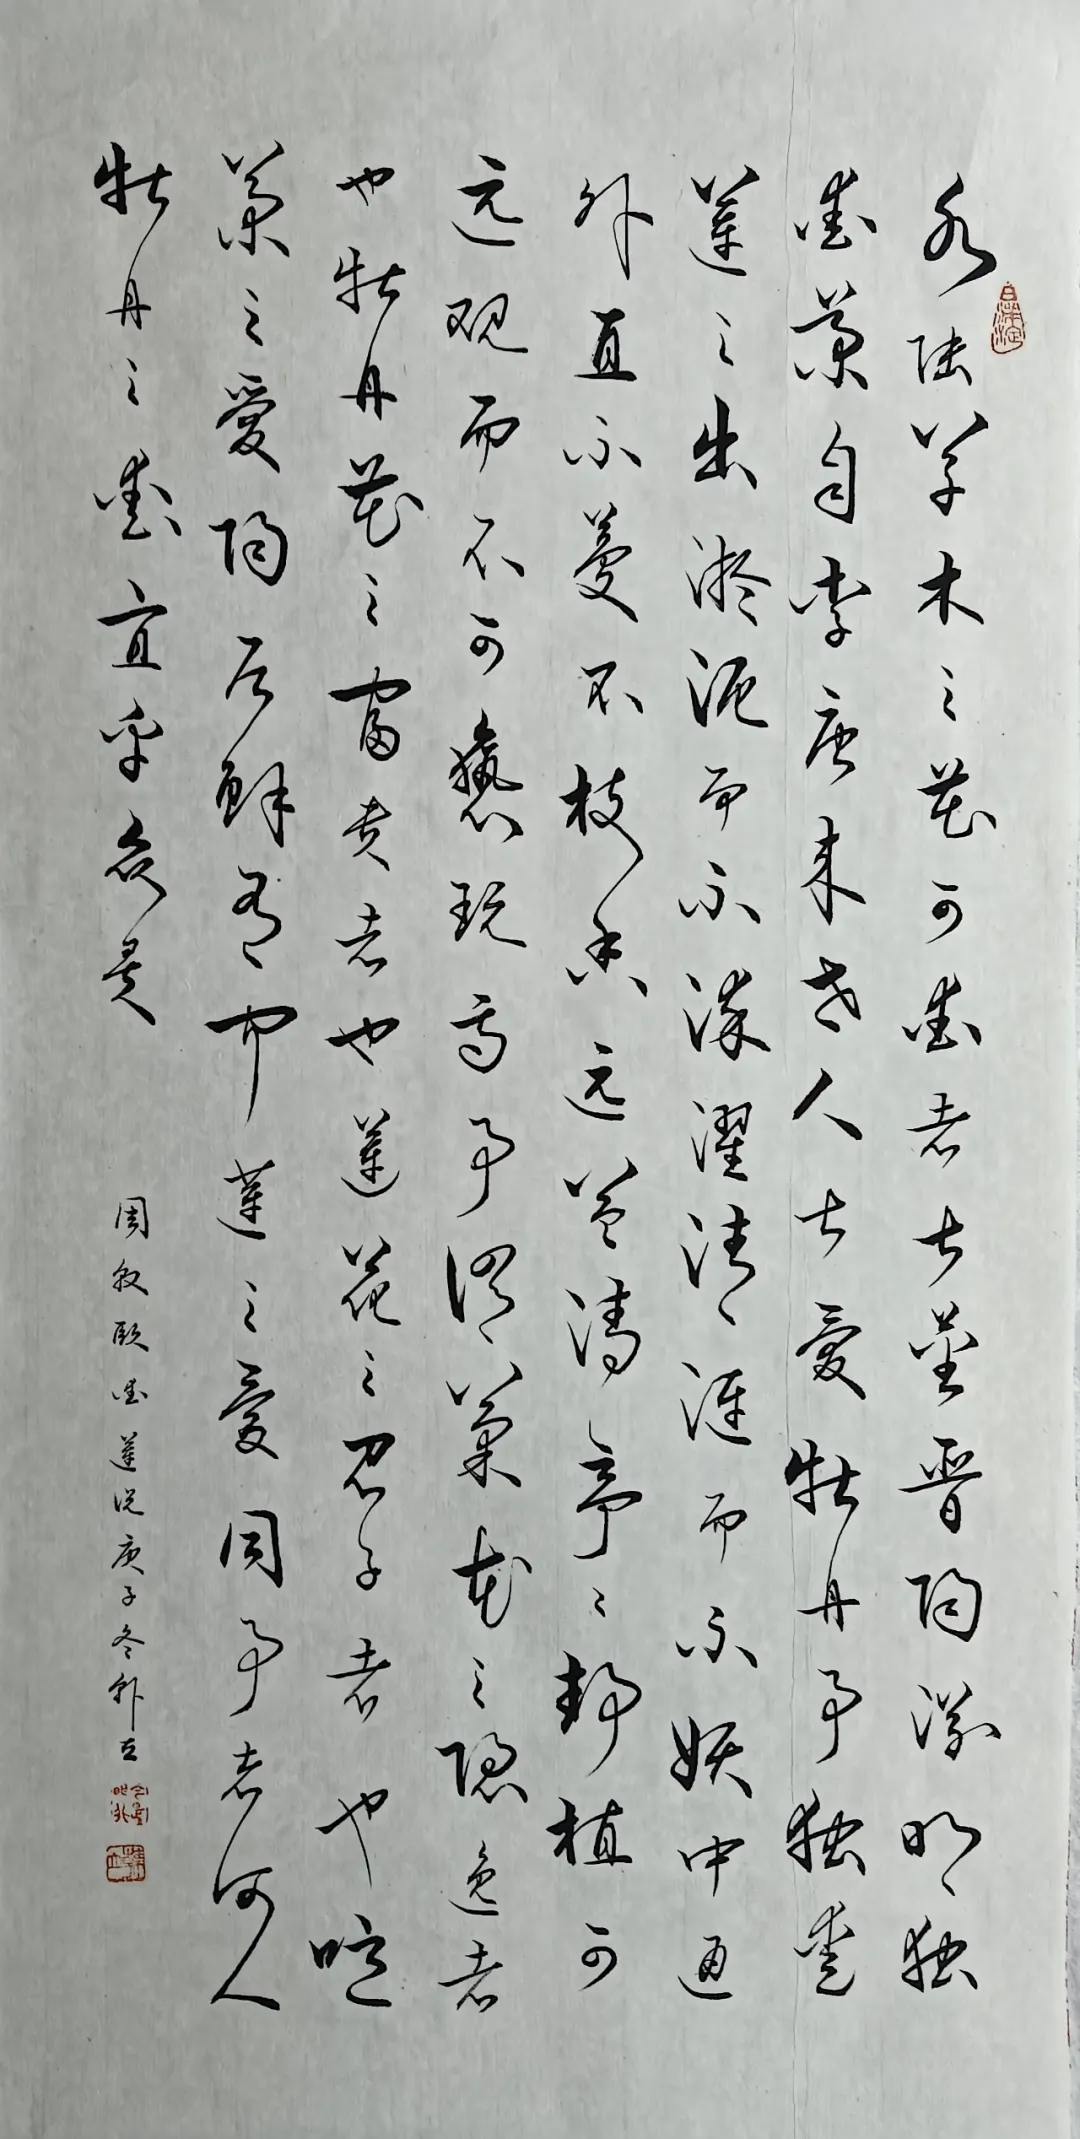 水陆草木之花可爱者甚蕃晋陶渊明独
爱菊自李唐来世人甚爱牡丹予独爱
莲之出淤泥而不染濯清涟而不妖中通
外直不蔓不枝香远益清亭亭静植可
远观而不可亵玩焉予谓菊花之隐逸者
也牡丹花之富贵者也莲花之君子者也噫
菊之爱陶后鲜有闻莲之爱同予者何人
牡丹之爱宜乎众矣
周敦颐爱莲说庚子冬